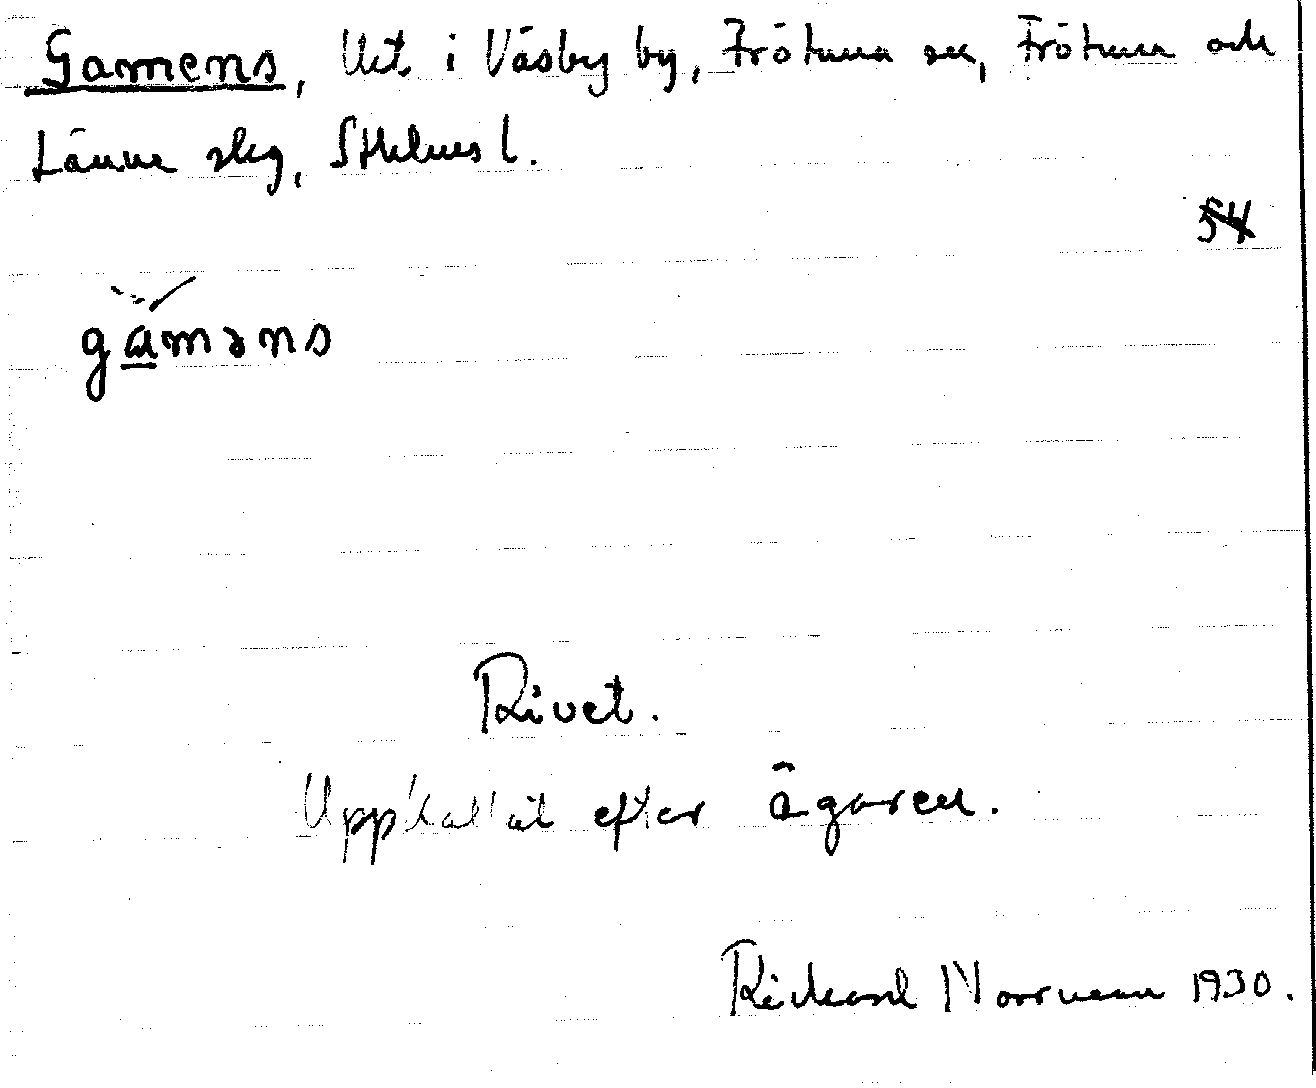 Gamens, Ut i Väsby by, Frötuna sn, Frötuna och
Länna slg, Sthlms l.
54
gaməns
Rivet.
Uppkallat efter ägaren.
Rickard Norrman 1930.